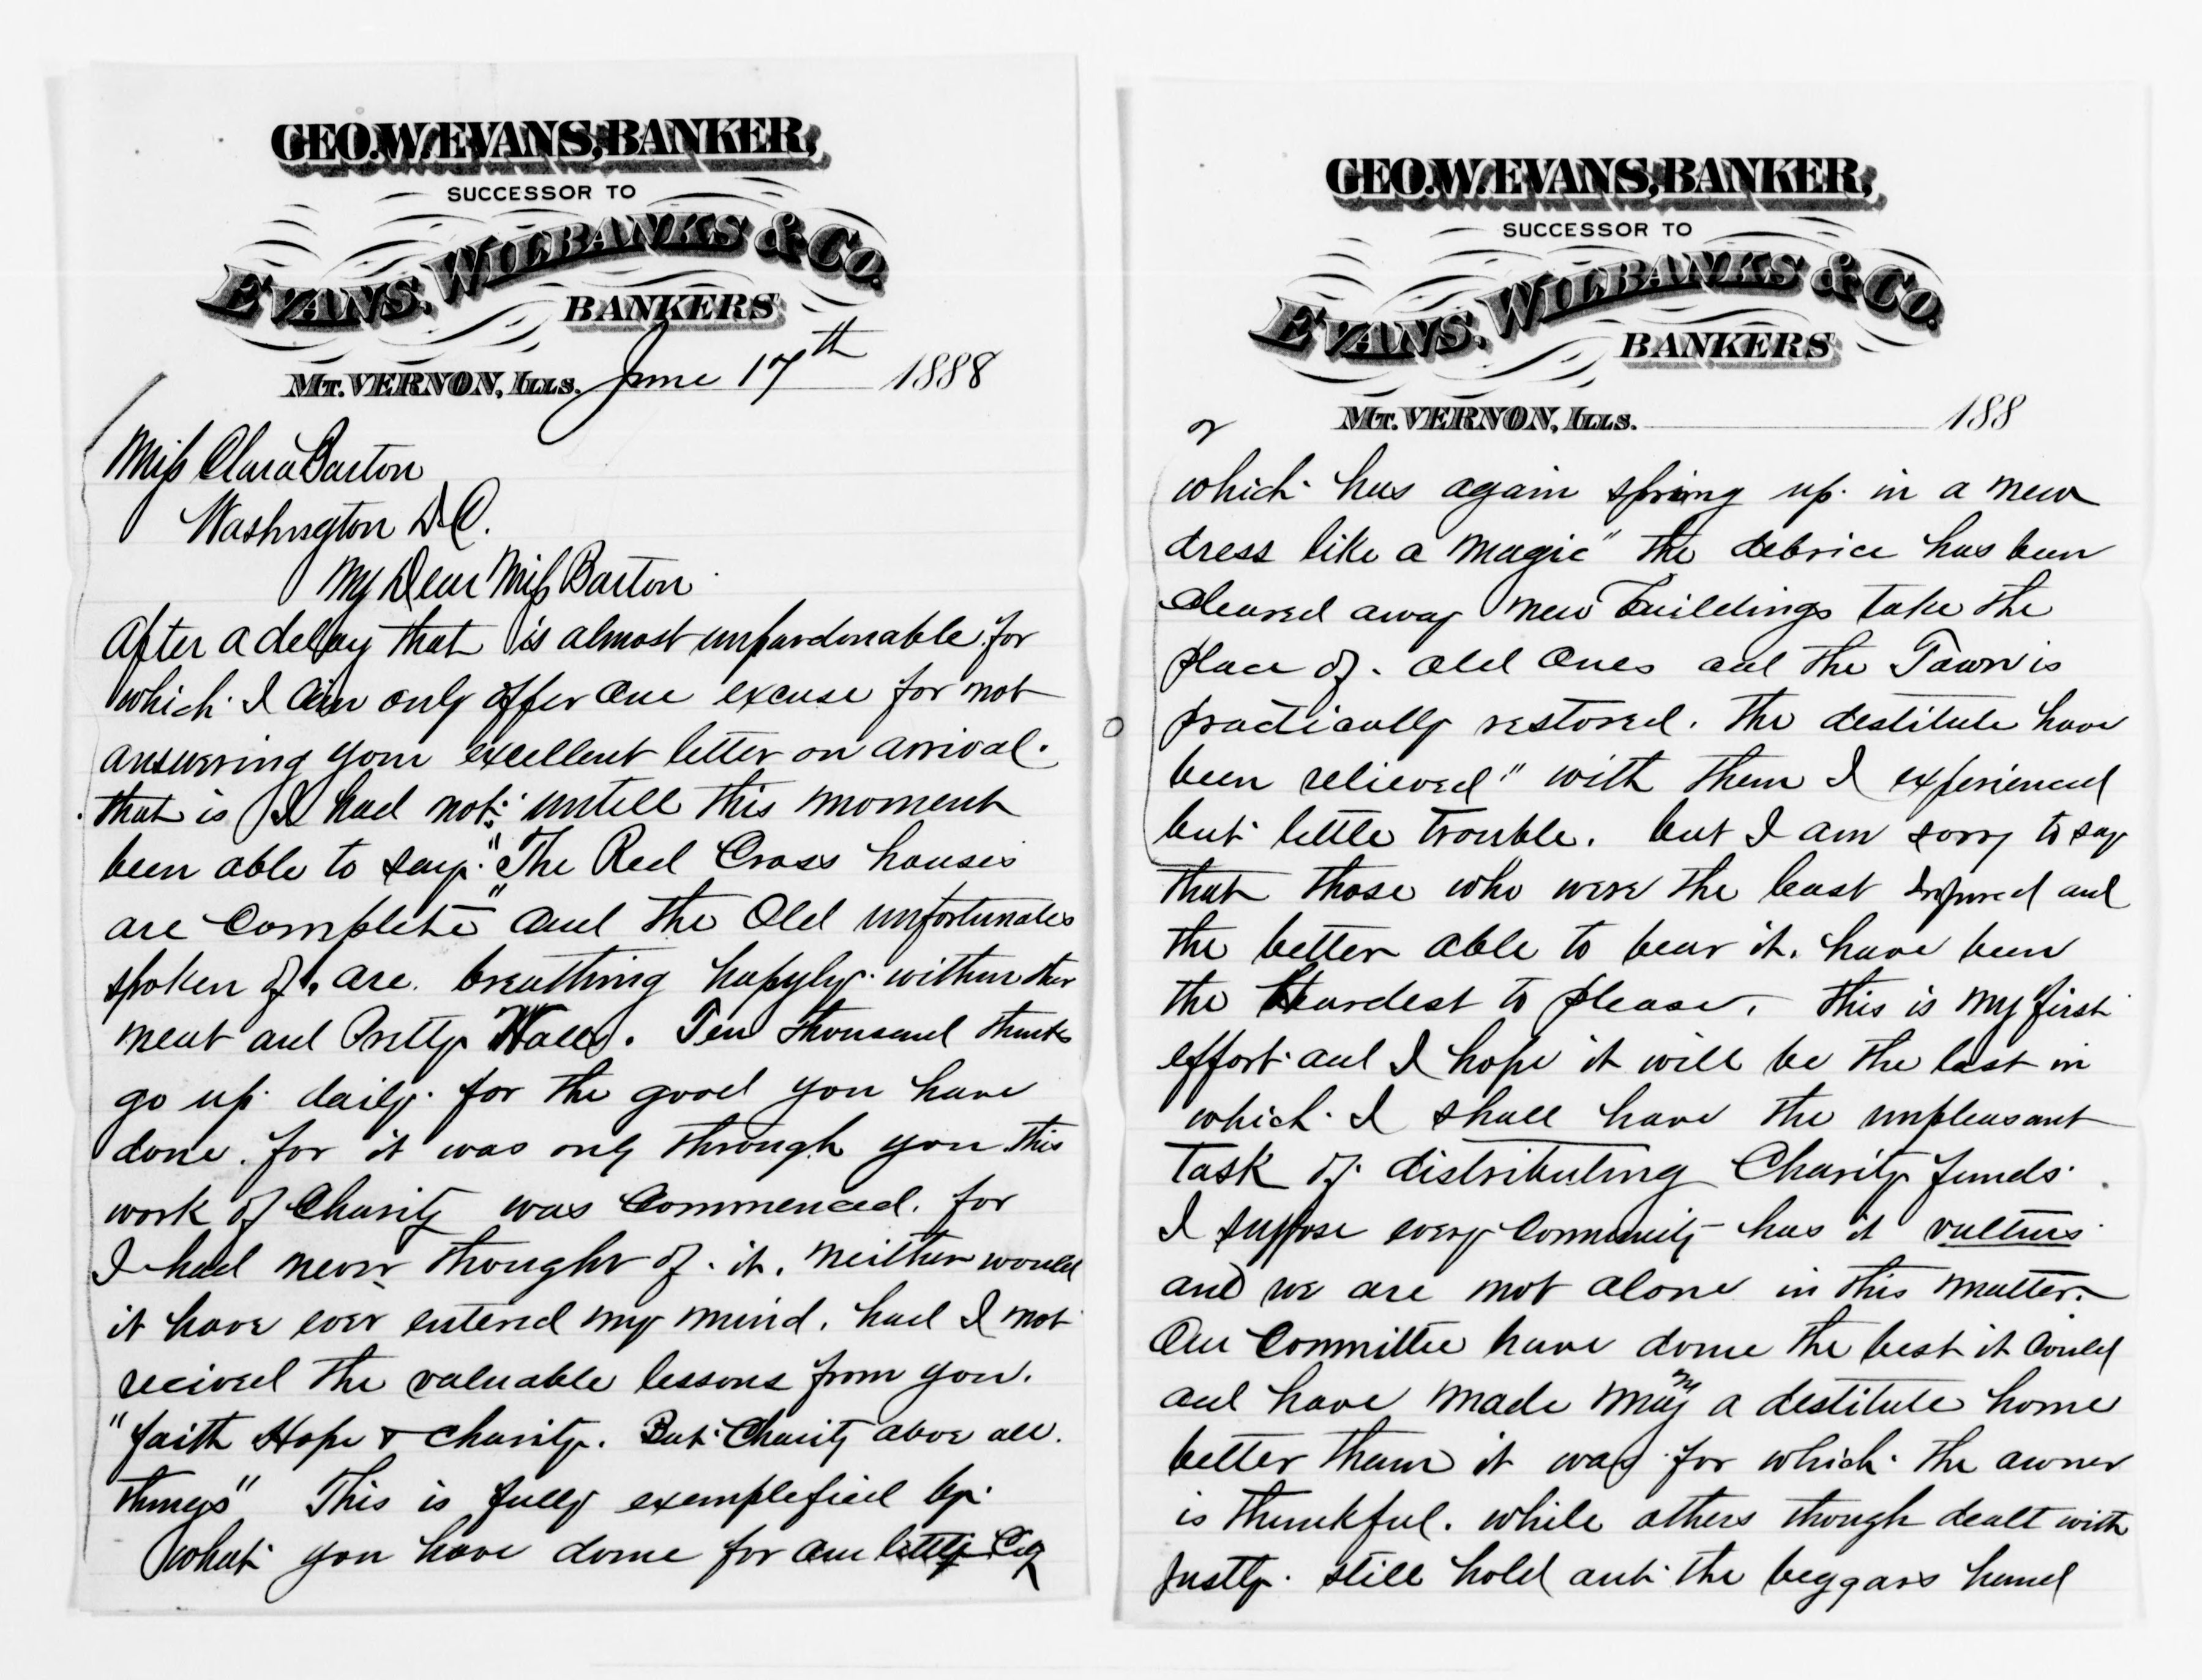 GEO. W. EVANS, BANKER,
SUCCESSOR TO
EVANS, WILBANKS & CO.
BANKERS
MT. VERNON, ILLS. June 17th 1888
Miss Clara Barton
Washington D.C.
My Dear Miss Barton.
After a delay that is almost unpardonable for
which I can only offer one excuse for not
answering your excellent letter on arrival.
that is I had not untill this moment
been able to say. "The Red Cross houses
are Complete" and the Old unfortunates
spoken of, are breathing hapyly within ther
neat and Pretty Walls. Ten thousand thanks
go up daily for the good you have
done. for it was only through you this
work of Charity was Commenced. for
I had never thought of it. neither would
it have ever entered my mind. had I not
recived the valuable lessons from you.
"faith Hope & charity. But Charity above all
things" This is fully exemplefied by
what you have done for our little City
2
GEO. W. EVANS, BANKER,
SUCCESSOR TO
EVANS, WILBANKS & CO.
BANKERS
MT. VERNON, ILLS. 188
which has again spring up in a new
dress like a magic" the debrice has been
Cleared away new Buildings take the
place of old Ones and the Town is
practically restored. the destitute have
been relieved" with them I experienced
but little trouble. but I am sorry to say
that those who were the least Injured and
the better able to bear it. have been
the Hardest to please. this is my first
effort and I hope it will be the last in
which I shall have the unpleasant
Task of distributing Charity funds.
I suppose every Community has it vulturs
and we are not alone in this matter.
Our Committee have done the best it Could
and have made many a destitute home
better than it was for which the owner
is thankful. while others though dealt with
Justly. still hold out the beggars hand